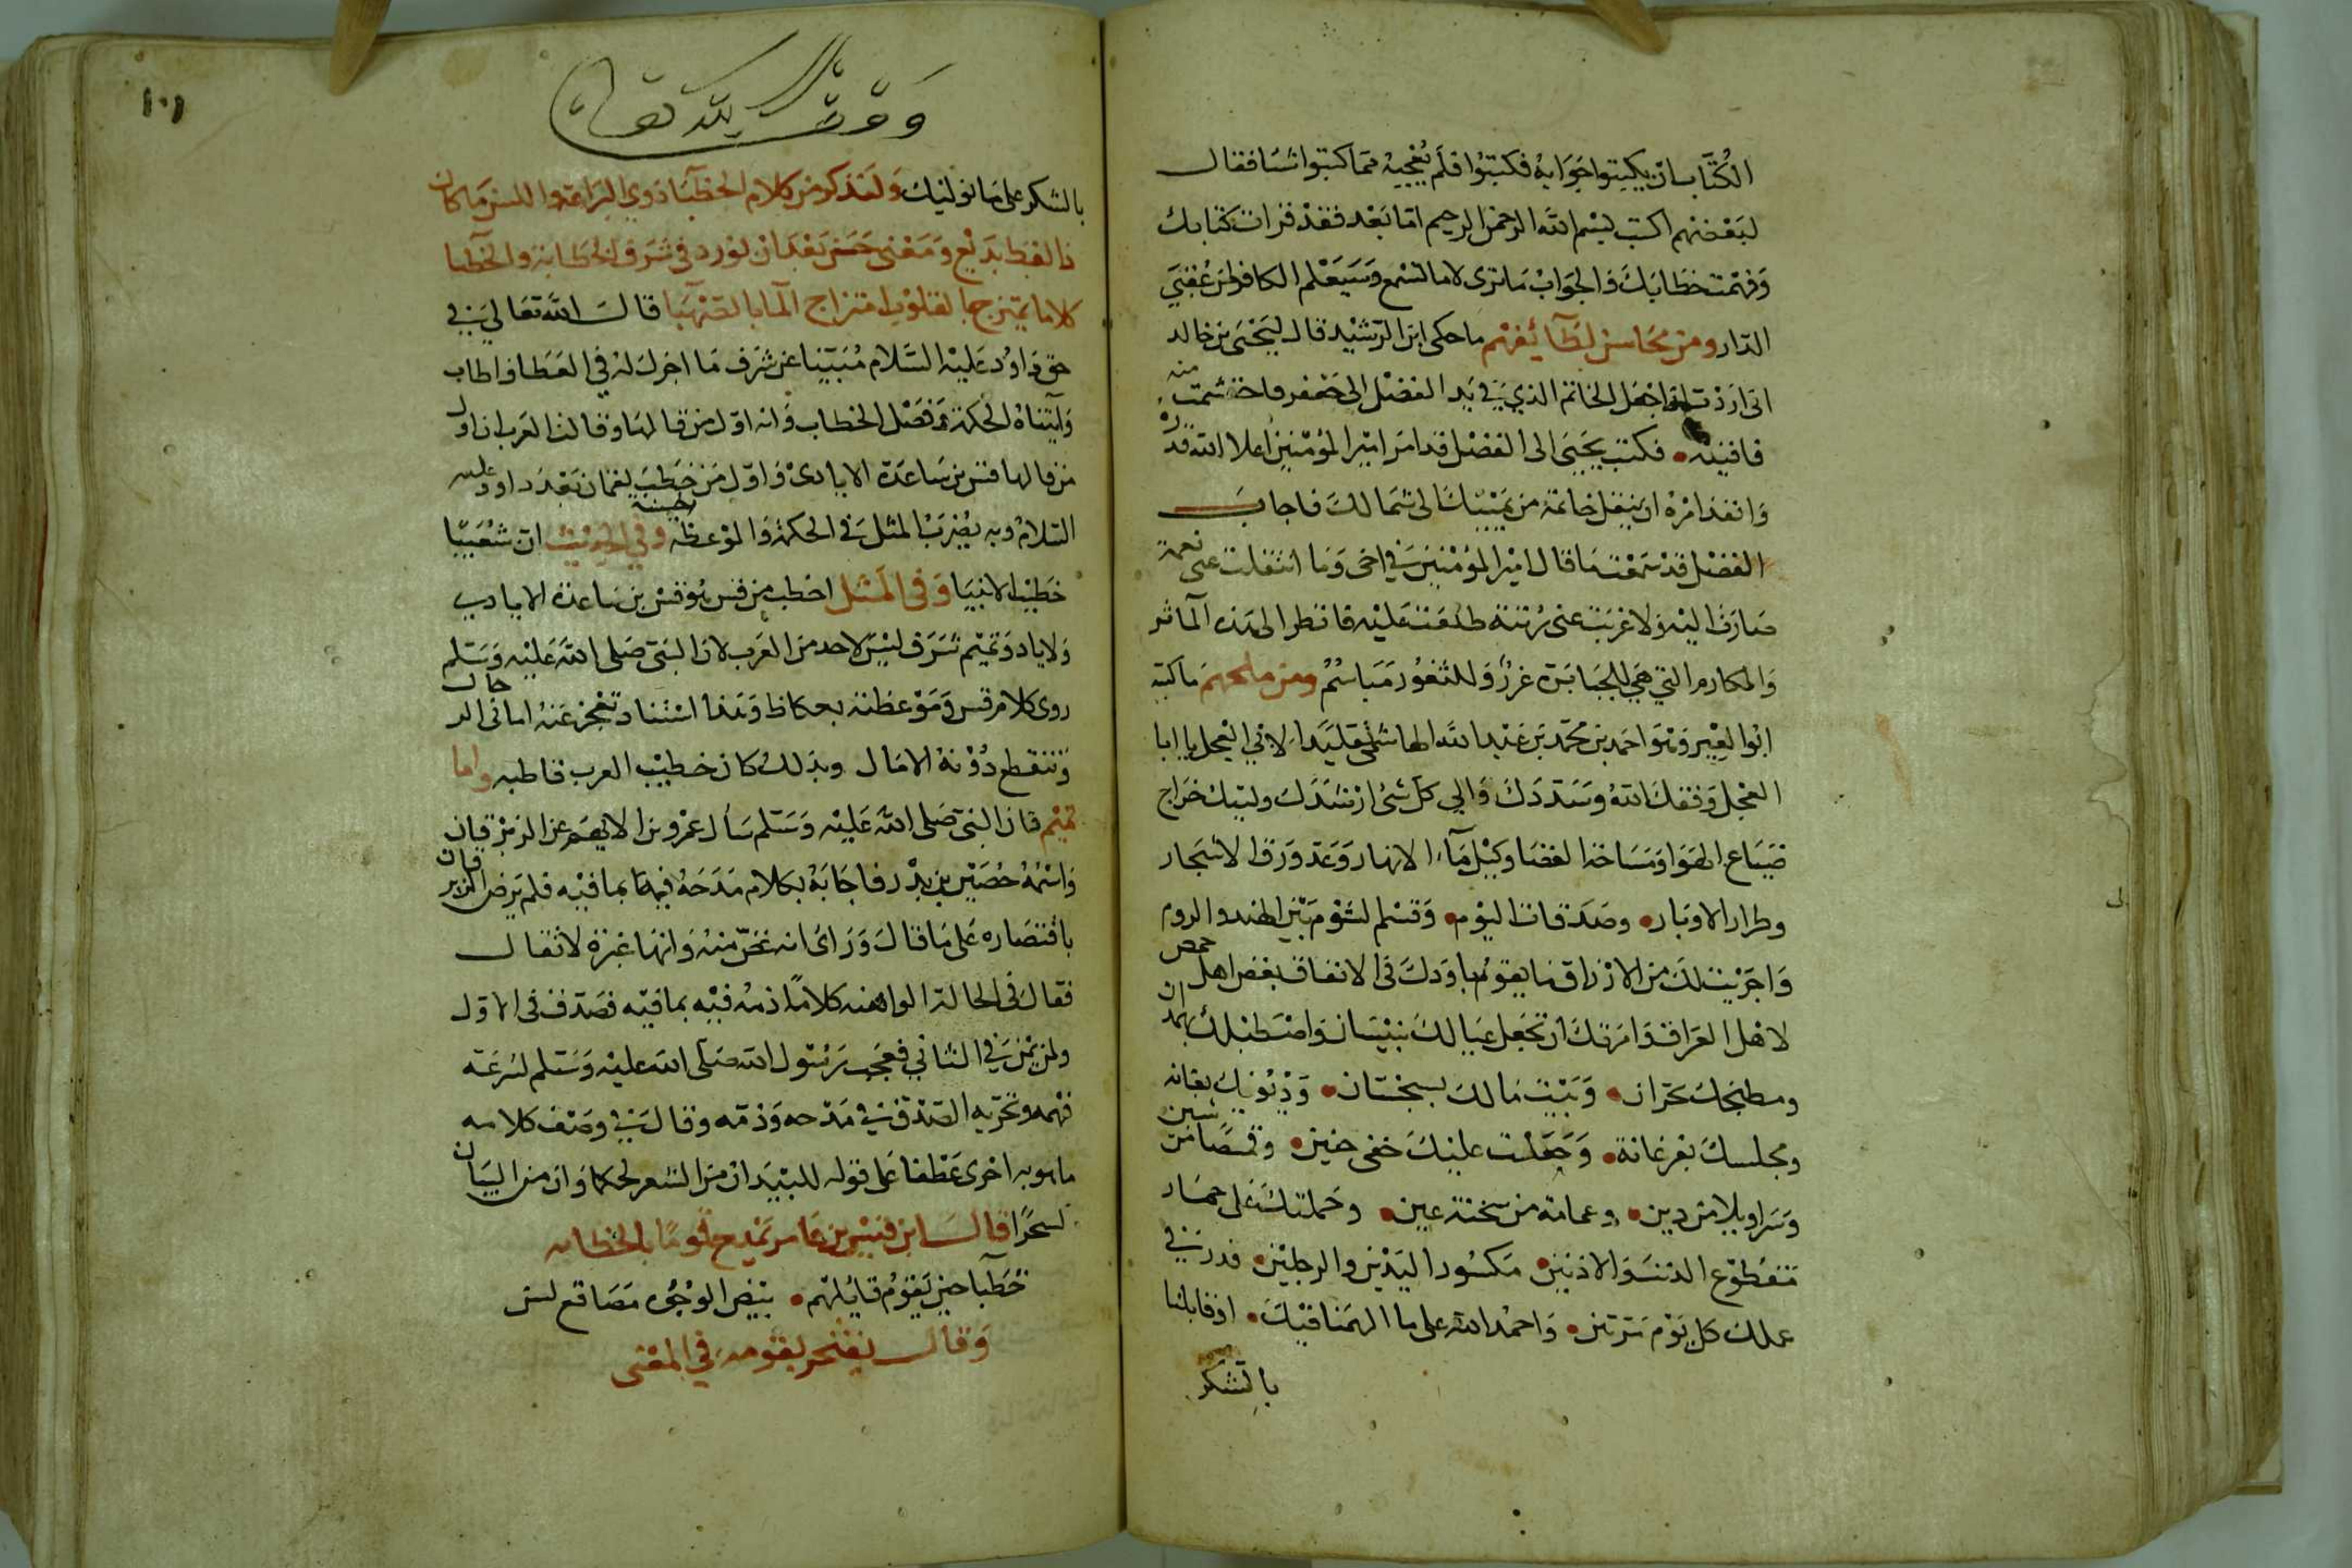 الكُتَّاب ان يكتبوا جَوَابهُ فكتبُوا فلَم يُعْجبهُ مما كتبوا شيَا فقال
لبَعْضهم اكتب بسْم اللَّه الرحمن الرحيم امّا بَعْد فقدْ قرات كتابك
وَفهمْت خطَابَكَ وَالجوَابْ مَا ترى لا ما تسْمع وَسَيَعْلم الكافر لمن عُقبَي
الدّار ومن مَحَاسن لطَآئفهْم ما حكى ان الرّشيْد قال ليَحْيَى بن خالد
انى ارَدْت ان اجْعَل الخاتم الذي في يَد الفضْل الى جَعْفر واحتشمت منه
فاقنيه • فكتب يحَيَى الى الفضل قد امَر اميْر المؤمْنِينَ اعلا الله قدْرهُ
وَانفذ امْرهُ ان ينقل خاتمهُ من يَميْنكَ الى شمَالكَ فاجابَ
الفضْل قدْ سَمعْت مَا قال اميْر المؤمْنينَ في اخى وَمَا انتقلت عنى نعمة
صَارَت اليْه وَلا غربَت عنى رُتبة طلعَت عَليْه فانظر الى هَذه المآثر
وَالمكارم التي هيَ للجبَابَرة غررٌ وَللثغُور مَبَاسمٌ ومن ملحهمَ ما كتبَهُ
ابُوا العِبر وَهوَ احمد بن محمّد بن عَبْد اللَّه الهاشمي تقليَدا لابي العجل يا ابا
العجل وَفقكَ اللهُ وسَدّدَكَ وَالي كل شئ ارْشَدَكَ وليتك خرَاج
ضيَاع الهَوَا وَمَسَاحَة الفضَا وَكيْل مَآء الانهار وَعَدّ وَرَق الاشجَار
وطراز الاوبَار • وصَدَقات البُوْم • وَقسْم الشوْم بَيْن الهند والروم
وَاجرَيْت لكَ من الارْزَاق مَا يقوم باوَدكَ في الانفاق بغض اهل حمص
لاهْل العرَاق وَامَرتكَ ان تجعَل عيَالكَ ببَيْسَان وَاصْطبْلك بهمدان
ومطبَخكَ بحَرّان • وَبَيْت مَالكَ بسجسْتان • وَدْيُونكَ بغانه
ومجلسكَ بفرغانة • وَجَعَلْت عليْكَ خفى حنين • وقمصًا من شين
وَسَراويلا من دين • وعمامَة من سخنة عين • وحَملتكَ عَلى حمَار
مقطوْع الذنبَ وَالاذنيْن • مَكسُور اليَدْيْن والرجليْن • فدر في
عملكَ كل يَوْم مَرتين • وَاحمْد الله على ما الهمَنا فيْكَ • اذ قابلنا
بالشكر
وقف لله تعالى
١٠١
بالشكر على مَا نوليْكَ وَلنذكر من كلام الخطبَآ ذوي البَرَاعَة واللسن مَا كان
ذا لفظ بَديْع وَمَعْنى حَسَن بَعْدَ ان نوْرد في شرَف الخطَابة والخطبا
كلاما يمتزج بالقلوب امتزاج المآ بالصّهبَا قالَ اللَّه تعَالي في
حق دَاوُد عَليْه السَّلام مُبَيّنا عَن شرَف مَا اجزل له في العَطا واطاب
وَآتيناهُ الحكمة وَفصْل الخطاب وَانه اوّل من قالهَا وَقالت العَرب ان اول
من قالها قس بن سَاعدَة الايادىْ وَاوّل مَن خَطبَ لقمان بَعْد داود عليه
السّلامُ وبه يضْربُ المثل في الحكمة وَالموْعظه الحسنة وفي الحديْث انّ شعَيبًا
خَطيْب الانبيَا وَفي المثل اخطب من قس هُو قسّ بن سَاعدة الايادي
وَلاياد وَتميْم شرَف ليْسَ لاحد من العَرب لانّ النبَىّ صَلى اللَّه عَليْه وَسَلم
روى كلام قس وَمَوْعظته بعكاظ وَهَذا اسْنَاد تعْجز عَنهُ امانى الرجال
وَتنقطع دُوْنهُ الامَال وبذلكَ كان خطيْب العرب قاطبه واما
تميْم فان النبىّ صَلى اللَّه عَليْه وَسَلم سَأل عمْرو بن الاهتم عن الزبرْقان
وَاسْمهُ حُصَيْن بن بدْر فاجَابَهُ بكلام مَدَحَهُ فيْه بما فيْه فلم يَرض الزبرقان
باقتصَاره عَلى مَا قالَ وَرَأى انه غضّ منهُ وَانهَا غمزة لا تقال
فقالَ في الحالة الواهنه كلامًا ذمهُ فيْه بما فيْه فصَدق في الاوّل
ولم يَمن في الثاني فعَجب رَسُول الله صَلى الله عليْه وَسَلم لسُرعَة
فهمه وتحَرّيه الصّدْق في مَدْحه وَذمّه وقال في وصْف كلامه
ما هو به احرى عَطفا على قوله للبيَد ان من الشعر لحكما وَان من البيَان
لسحْرًا قالَ ابن قيْس بن عَاصم يَمدح قومًا بالخطابه
خُطبآ حيْن يَقوْم قائلهُم • بيْض الوُجُوه مَصَاقع لسن
وَقال يفتخر بقومه في المعْنى